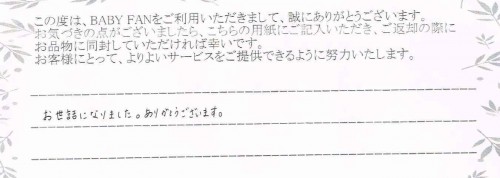 この度は、BABY FANをご利用いただきまして、誠にありがとうございます。
お気づきの点がございましたら、こちらの用紙にご記入いただき、ご返却の際に
お品物に同封していただければ幸いです。
お客様にとって、よりよいサービスをご提供できるように努力いたします。
お世話になりました。ありがとうございます。